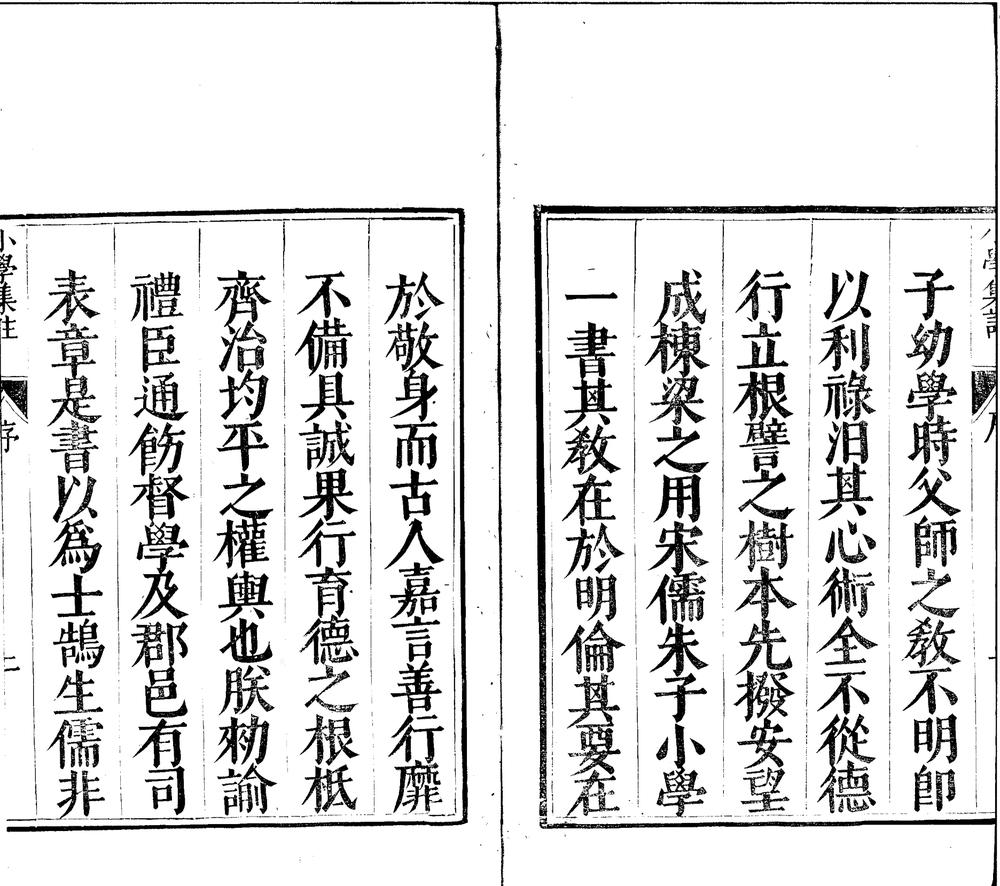 子幼學時父師之敎不明卽
以利祿汨其心術全不從德
行立根譬之樹本先撥安望
成棟梁之用宋儒朱子小學
一書其敎在於明倫其要在
於敬身而古人嘉言善行靡
不備具誠果行育德之根柢
齊治均平之權輿也朕勑諭
禮臣通飭督學及郡邑有司
表章是書以爲士鵠生儒非
小學集註
序
二